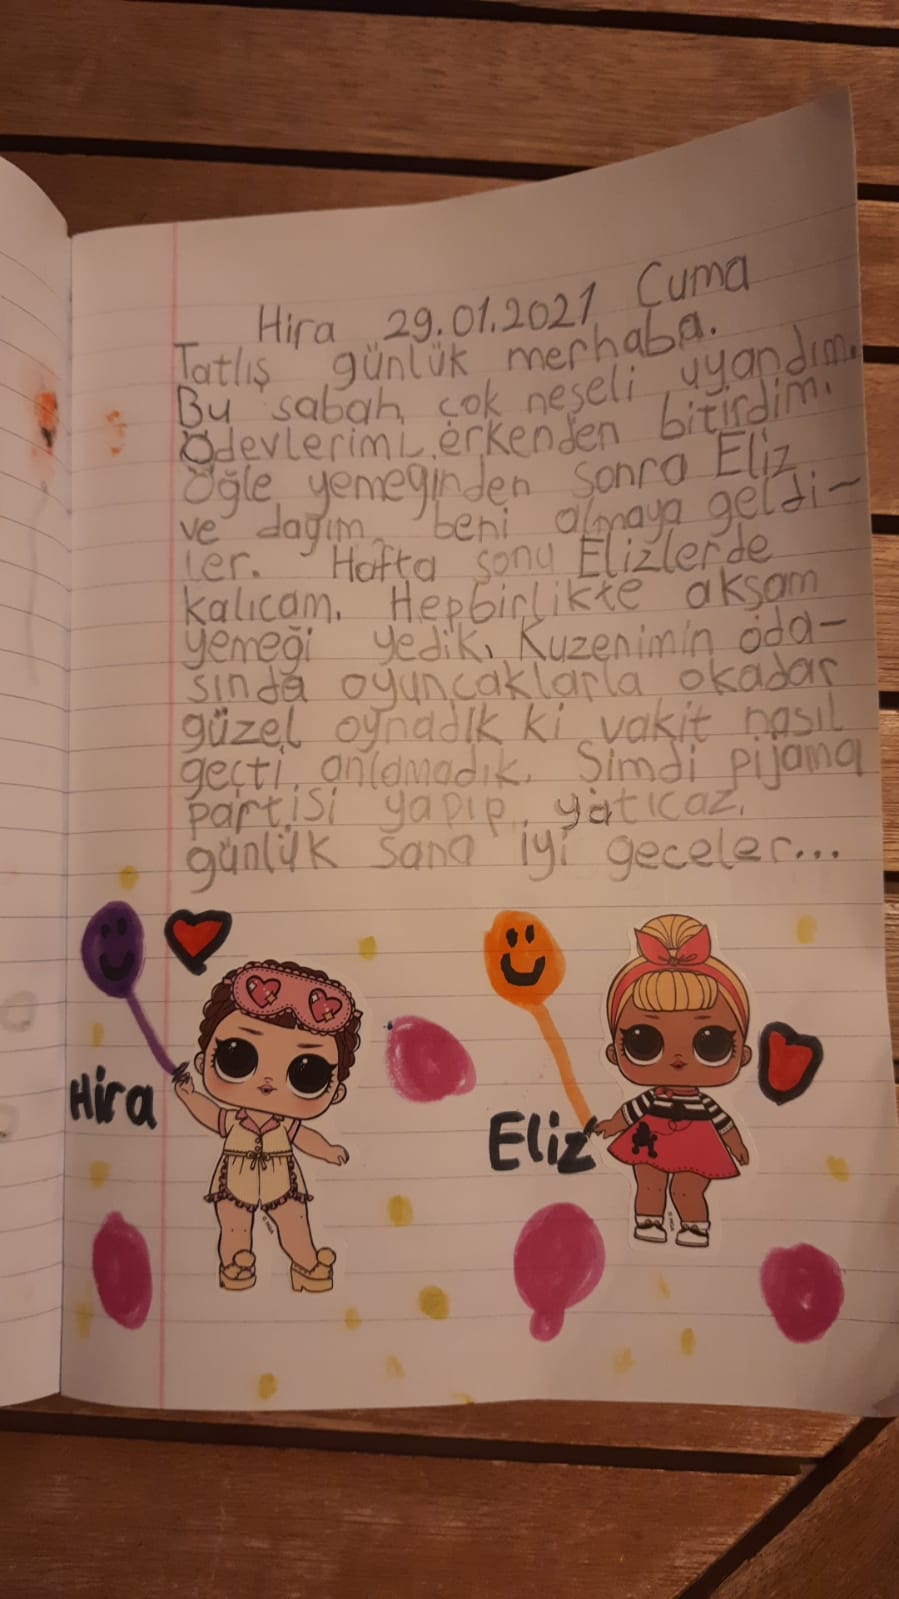 Hira 29.01.2021 Cuma
Tatlış günlük merhaba.
Bu sabah çok neşeli uyandım.
Ödevlerimi erkenden bitirdim.
Öğle yemeğinden sonra Eliz
ve dayım beni almaya geldi-
ler. Hafta sonu Elizlerde
kalıcam. Hepbirlikte akşam
yemeği yedik. Kuzenimin oda-
sında oyuncaklarla okadar
güzel oynadık ki vakit nasıl
geçti anlamadık. Şimdi pijama
partisi yapıp yatıcaz.
günlük sana iyi geceler...
Hira
Eliz